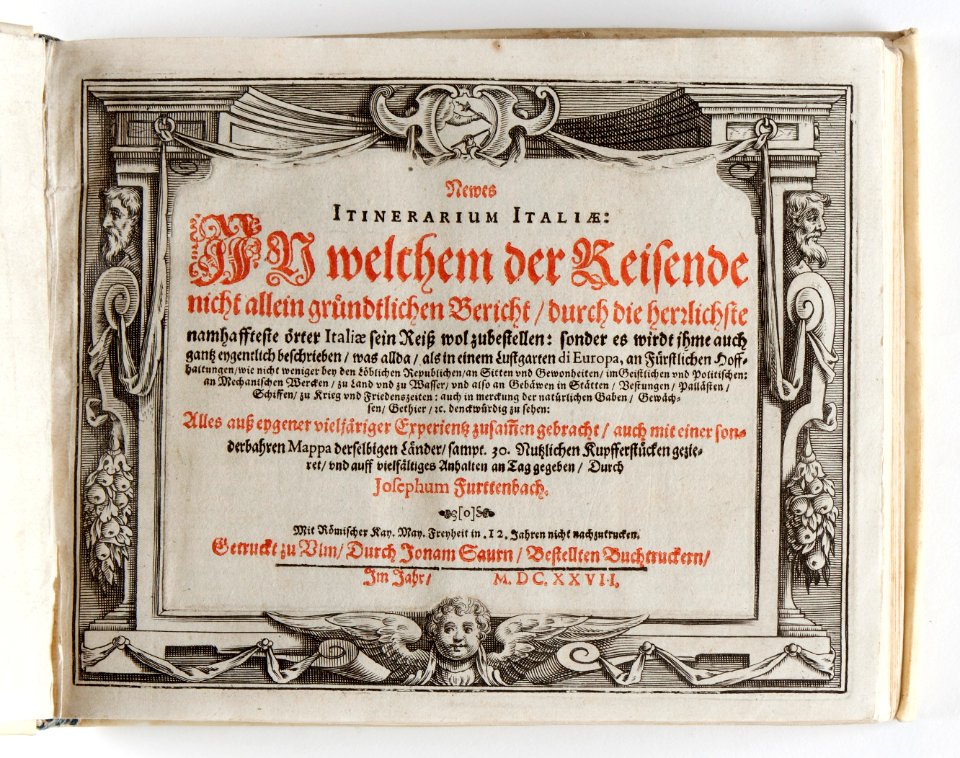 Newes
ITINERARIUM ITALIÆ:
IN welchem der Reisende
nicht allein gründtlichen Bericht / durch die herrlichste
namhaffteste örter Italiæ sein Reiß wol zubestellen: sonder es wirdt ihme auch
gantz eygentlich beschrieben / was allda / als in einem Lustgarten di Europa, an Fürstlichen Hoff-
haltungen / wie nicht weniger bey den Löblichen Republichen / an Sitten vnd Gewonheiten / im Geistlichen vnd Politischen:
an Mechanischen Wercken / zu Land vnd zu Wasser / vnd also an Gebäwen in Stätten / Vestungen / Pallästen /
Schiffen / zu Krieg vnd Friedenszeiten: auch in merckung der natürlichen Gaben / Gewäch-
sen / Gethier / ꝛc. denckwürdig zu sehen:
Alles auß eygener vieljäriger Experientz zusam̃en gebracht / auch mit einer son-
derbahren Mappa derselbigen Länder / sampt. 30. Nutzlichen Kupfferstücken gezie-
ret / vnd auff vielfältiges Anhalten an Tag gegeben / Durch
Josephum Furttenbach.
[o]
Mit Römischer Kay. May. Freyheit in .12. Jahren nicht nachzutrucken.
Getruckt zu Vlm / Durch Jonam Saurn / Bestellten Buchtruckern /
Im Jahr / M. DC. XXVII.